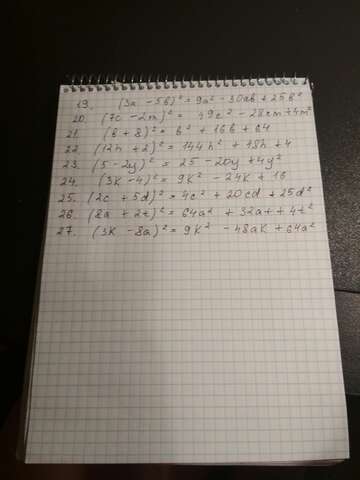 19. (3a - 5b)² = 9a² - 30ab + 25b²
20. (7c - 2m)² = 49c² - 28cm + 4m²
21. (b + 8)² = b² + 16b + 64
22. (12h + 2)² = 144h² + 48h + 4
23. (5 - 2y)² = 25 - 20y + 4y²
24. (3k - 4)² = 9k² - 24k + 16
25. (2c + 5d)² = 4c² + 20cd + 25d²
26. (8a + 2t)² = 64a² + 32at + 4t²
27. (3k - 8a)² = 9k² - 48ak + 64a²